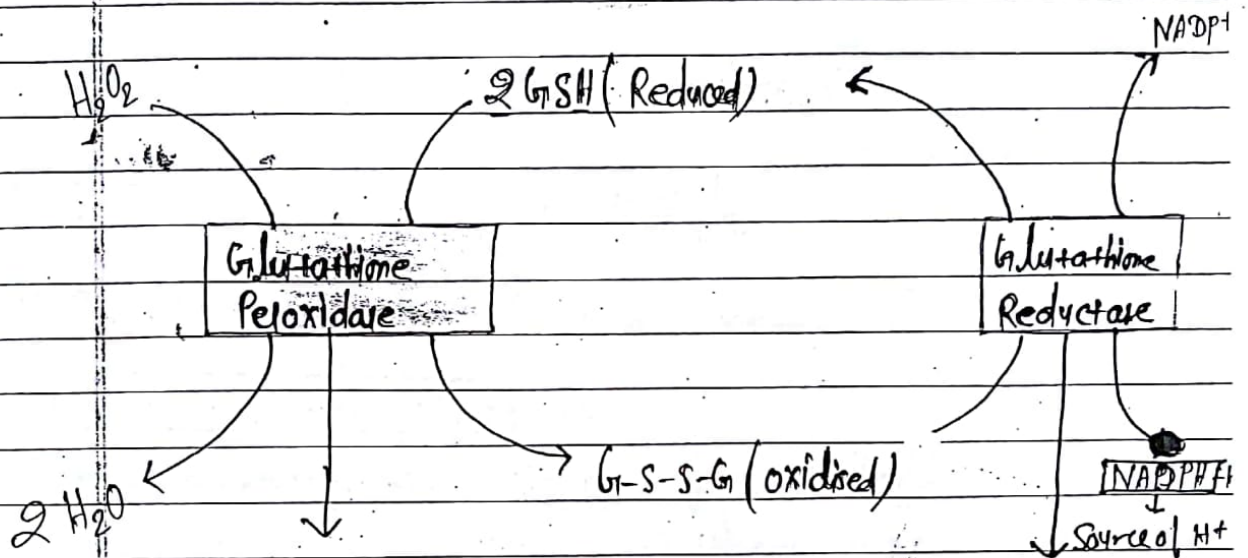 NADP+
H2O2
2 GSH (Reduced)
Glutathione
Peroxidase
Glutathione
Reductase
G-S-S-G (oxidised)
NADPH+
2 H2O
Source of H+